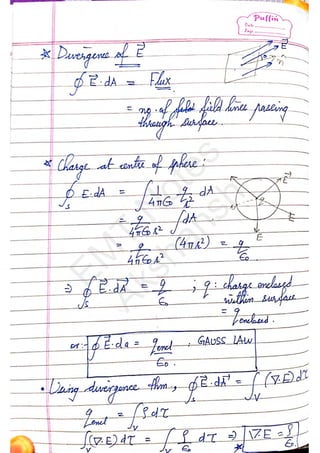 Puffin
Date
Page
* Divergence of E⃗
E⃗
n̂
∮ E⃗·dA = Flux
= no. of field lines passing
through surface.
* Charge at centre of sphere:
∮_S E·dA = ∫ 1/4πε₀ q/r² dA
= q/4πε₀r² ∫dA
= q/4πε₀r² (4πr²) = q/ε₀
E⃗
q
E
E
⇒ ∮_S E⃗·dA⃗ = q/ε₀ ; q: charge enclosed
within surface
= q_enclosed.
or:- ∮E⃗·da = q_encl/ε₀. , GAUSS LAW
• Using divergence thm., ∮E⃗·dA⃗ = ∫_V (∇·E)dτ
q_encl = ∫_V ρdτ
∫_V (∇·E)dτ = ∫_V ρ/ε₀ dτ ⇒ ∇·E = ρ/ε₀
EMT Notes